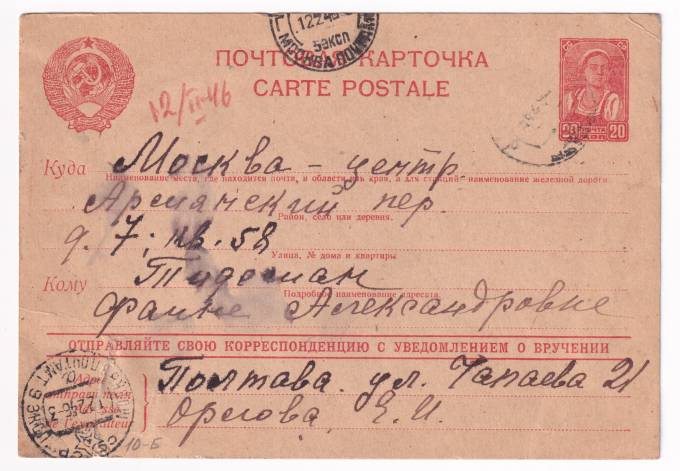 12.2.46
5 ЭКСП
МОСКВА
ПОЧТОВАЯ КАРТОЧКА
CARTE POSTALE
12/II 46
20 ПОЧТА 20
Куда Москва - центр.
Наименование места, где находится почта, и области или края, а для станций наименование железной дороги
пер.
Район, село или деревня.
д. 7; кв. 58
Улица, № дома и квартиры
Кому
Подробное наименование адресата
Фаине Александровне
ОТПРАВЛЯЙТЕ СВОЮ КОРРЕСПОНДЕНЦИЮ С УВЕДОМЛЕНИЕМ О ВРУЧЕНИИ
Полтава. ул. Чапаева 21
Орегова, Е.И.
10-Б